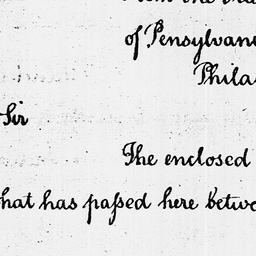 of Pensylvan
Phila
Sir
The enclosed
hat has paſsed here betwe